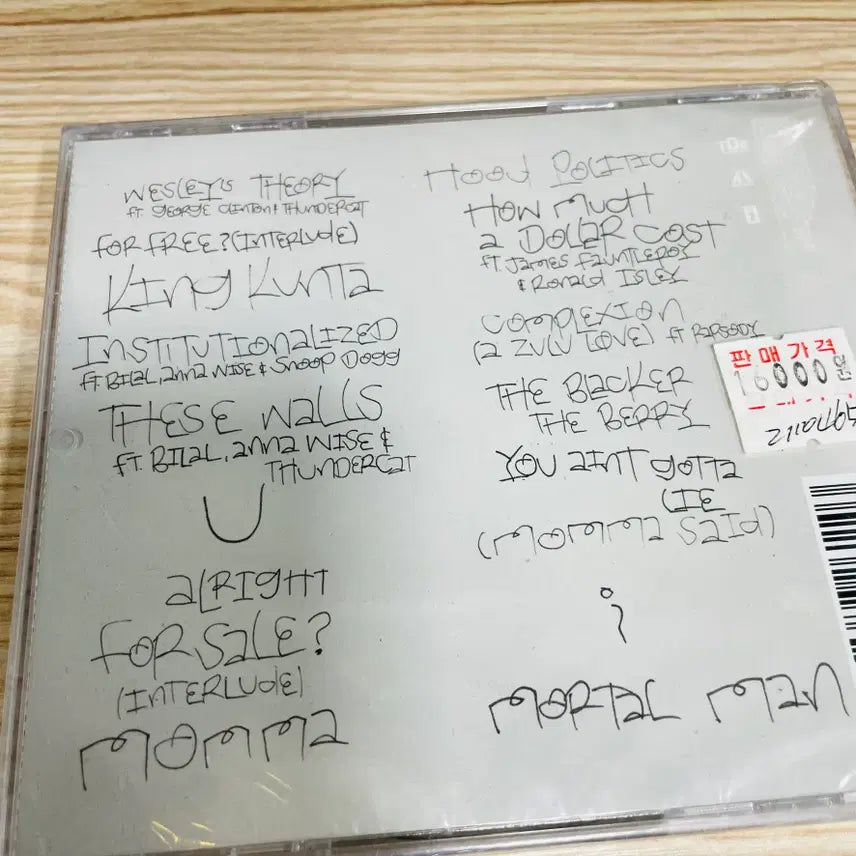 WESLEY'S THEORY
ft GEORGE CLINTON & THUNDERCAT
FOR FREE? (INTERLUDE)
KING KUNTA
INSTITUTIONALIZED
ft BILAL, anna WISE & SNOOP DOGG
THESE WALLS
ft BILAL, anna WISE &
THUNDERCAT
U
ALRIGHT
FOR SALE?
(INTERLUDE)
MOMMA
HOOD POLITICS
HOW MUCH
a DOLLAR COST
ft JAMES FAUNTLEROY
& RONALD ISLEY
COMPLEXION
(a ZULU LOVE) ft RAPSODY
THE BLACKER
THE BERRY
YOU AINT GOTTA
LIE
(MOMMA SAID)
i
MORTAL MAN
판매가격
16000원